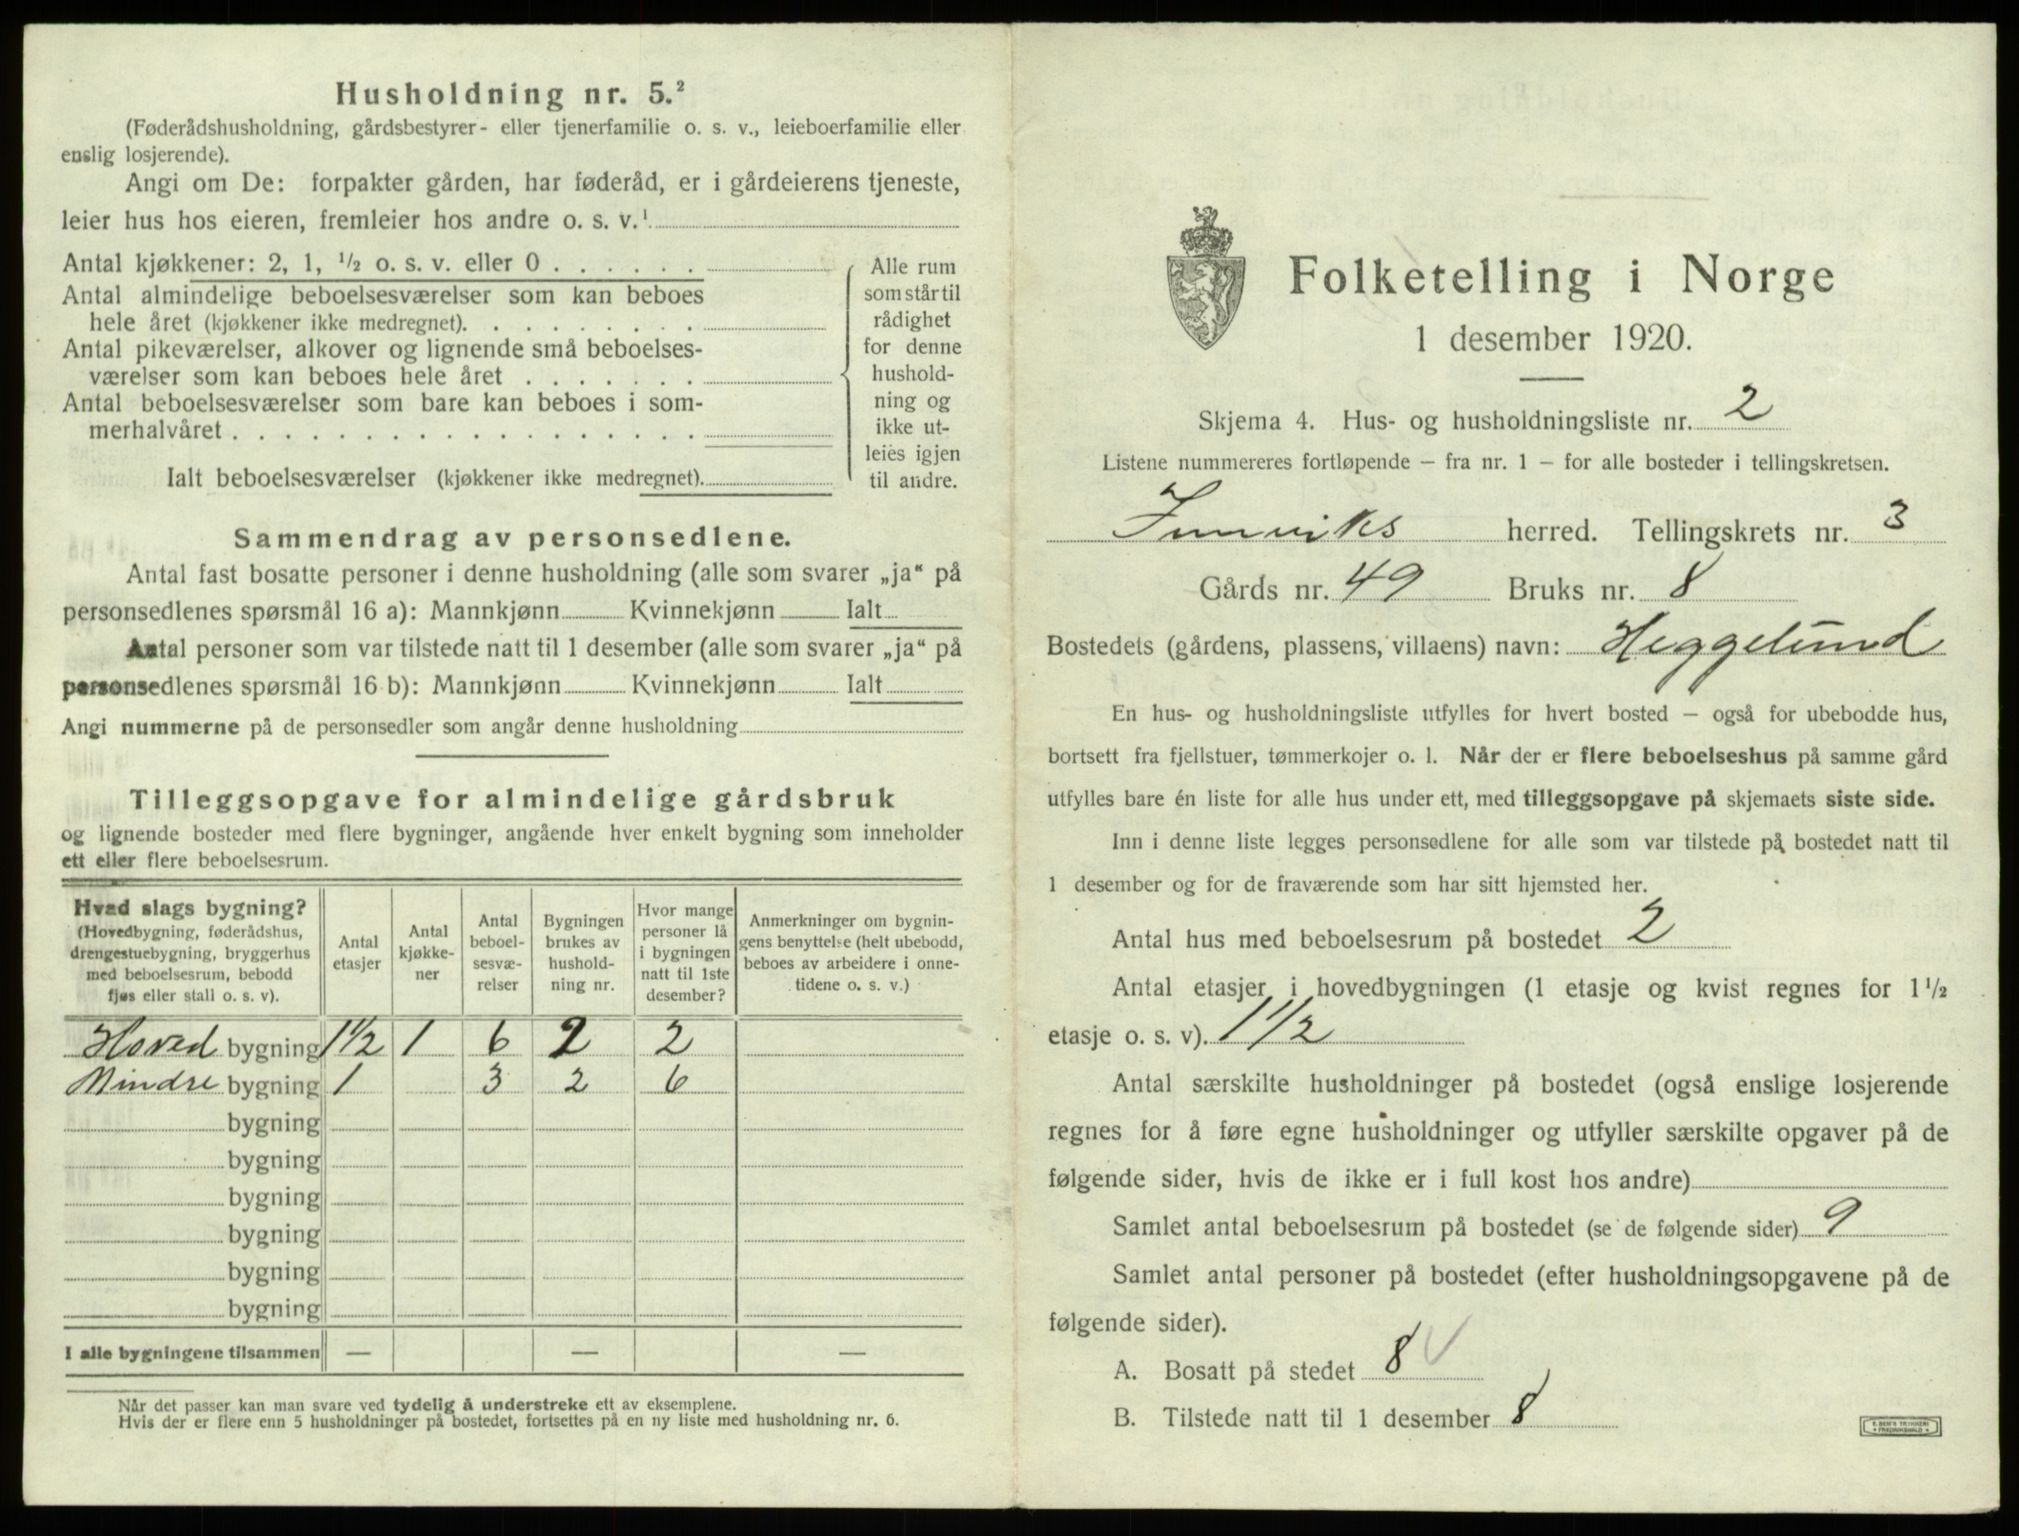 Husholdning nr. 5.²
(Føderådshusholdning, gårdsbestyrer- eller tjenerfamilie o. s. v., leieboerfamilie eller
enslig losjerende).
Angi om De: forpakter gården, har føderåd, er i gårdeierens tjeneste,
leier hus hos eieren, fremleier hos andre o. s. v.¹
Antal kjøkkener: 2, 1, ½ o. s. v. eller 0 . . . . . .
Antal almindelige beboelsesværelser som kan beboes
hele året (kjøkkener ikke medregnet). . . . . . . . .
Antal pikeværelser, alkover og lignende små beboelses-
værelser som kan beboes hele året . . . . . . .
Antal beboelsesværelser som bare kan beboes i som-
merhalvåret . . . . . . . . . . . . . . . . . .
Ialt beboelsesværelser (kjøkkener ikke medregnet).
Alle rum
som står til
rådighet
for denne
hushold-
ning og
ikke ut-
leies igjen
til andre.
Sammendrag av personsedlene.
Antal fast bosatte personer i denne husholdning (alle som svarer „ja“ på
personsedlenes spørsmål 16 a): Mannkjønn Kvinnekjønn Ialt
Antal personer som var tilstede natt til 1 desember (alle som svarer „ja“ på
personsedlenes spørsmål 16 b): Mannkjønn Kvinnekjønn Ialt
Angi nummerne på de personsedler som angår denne husholdning
Tilleggsopgave for almindelige gårdsbruk
og lignende bosteder med flere bygninger, angående hver enkelt bygning som inneholder
ett eller flere beboelsesrum.
Hvad slags bygning?
(Hovedbygning, føderådshus,
drengestuebygning, bryggerhus
med beboelsesrum, bebodd
fjøs eller stall o. s. v).
Antal
etasjer
Antal
kjøkke-
ner
Antal
beboel-
sesvæ-
relser
Bygningen
brukes av
hushold-
ning nr.
Hvor mange
personer lå
i bygningen
natt til 1ste
desember?
Anmerkninger om bygnin-
gens benyttelse (helt ubebodd,
beboes av arbeidere i onne-
tidene o. s. v.)
Hoved bygning 1½ 1 6 2 2
Mindre bygning 1 3 2 6
bygning
bygning
bygning
bygning
bygning
bygning
I alle bygningene tilsammen — — —
Når det passer kan man svare ved tydelig å understreke ett av eksemplene.
Hvis der er flere enn 5 husholdninger på bostedet, fortsettes på en ny liste med husholdning nr. 6.
Folketelling i Norge
1 desember 1920.
Skjema 4. Hus- og husholdningsliste nr. 2
Listene nummereres fortløpende – fra nr. 1 – for alle bosteder i tellingskretsen.
Innviks herred. Tellingskrets nr. 3
Gårds nr. 49 Bruks nr. 8
Bostedets (gårdens, plassens, villaens) navn: Heggelund
En hus- og husholdningsliste utfylles for hvert bosted – også for ubebodde hus,
bortsett fra fjellstuer, tømmerkojer o. l. Når der er flere beboelseshus på samme gård
utfylles bare én liste for alle hus under ett, med tilleggsopgave på skjemaets siste side.
Inn i denne liste legges personsedlene for alle som var tilstede på bostedet natt til
1 desember og for de fraværende som har sitt hjemsted her.
Antal hus med beboelsesrum på bostedet 2
Antal etasjer i hovedbygningen (1 etasje og kvist regnes for 1½
etasje o. s. v). 1½
Antal særskilte husholdninger på bostedet (også enslige losjerende
regnes for å føre egne husholdninger og utfyller særskilte opgaver på de
følgende sider, hvis de ikke er i full kost hos andre)
Samlet antal beboelsesrum på bostedet (se de følgende sider) 9
Samlet antal personer på bostedet (efter husholdningsopgavene på de
følgende sider).
A. Bosatt på stedet 8 ✓
B. Tilstede natt til 1 desember 8